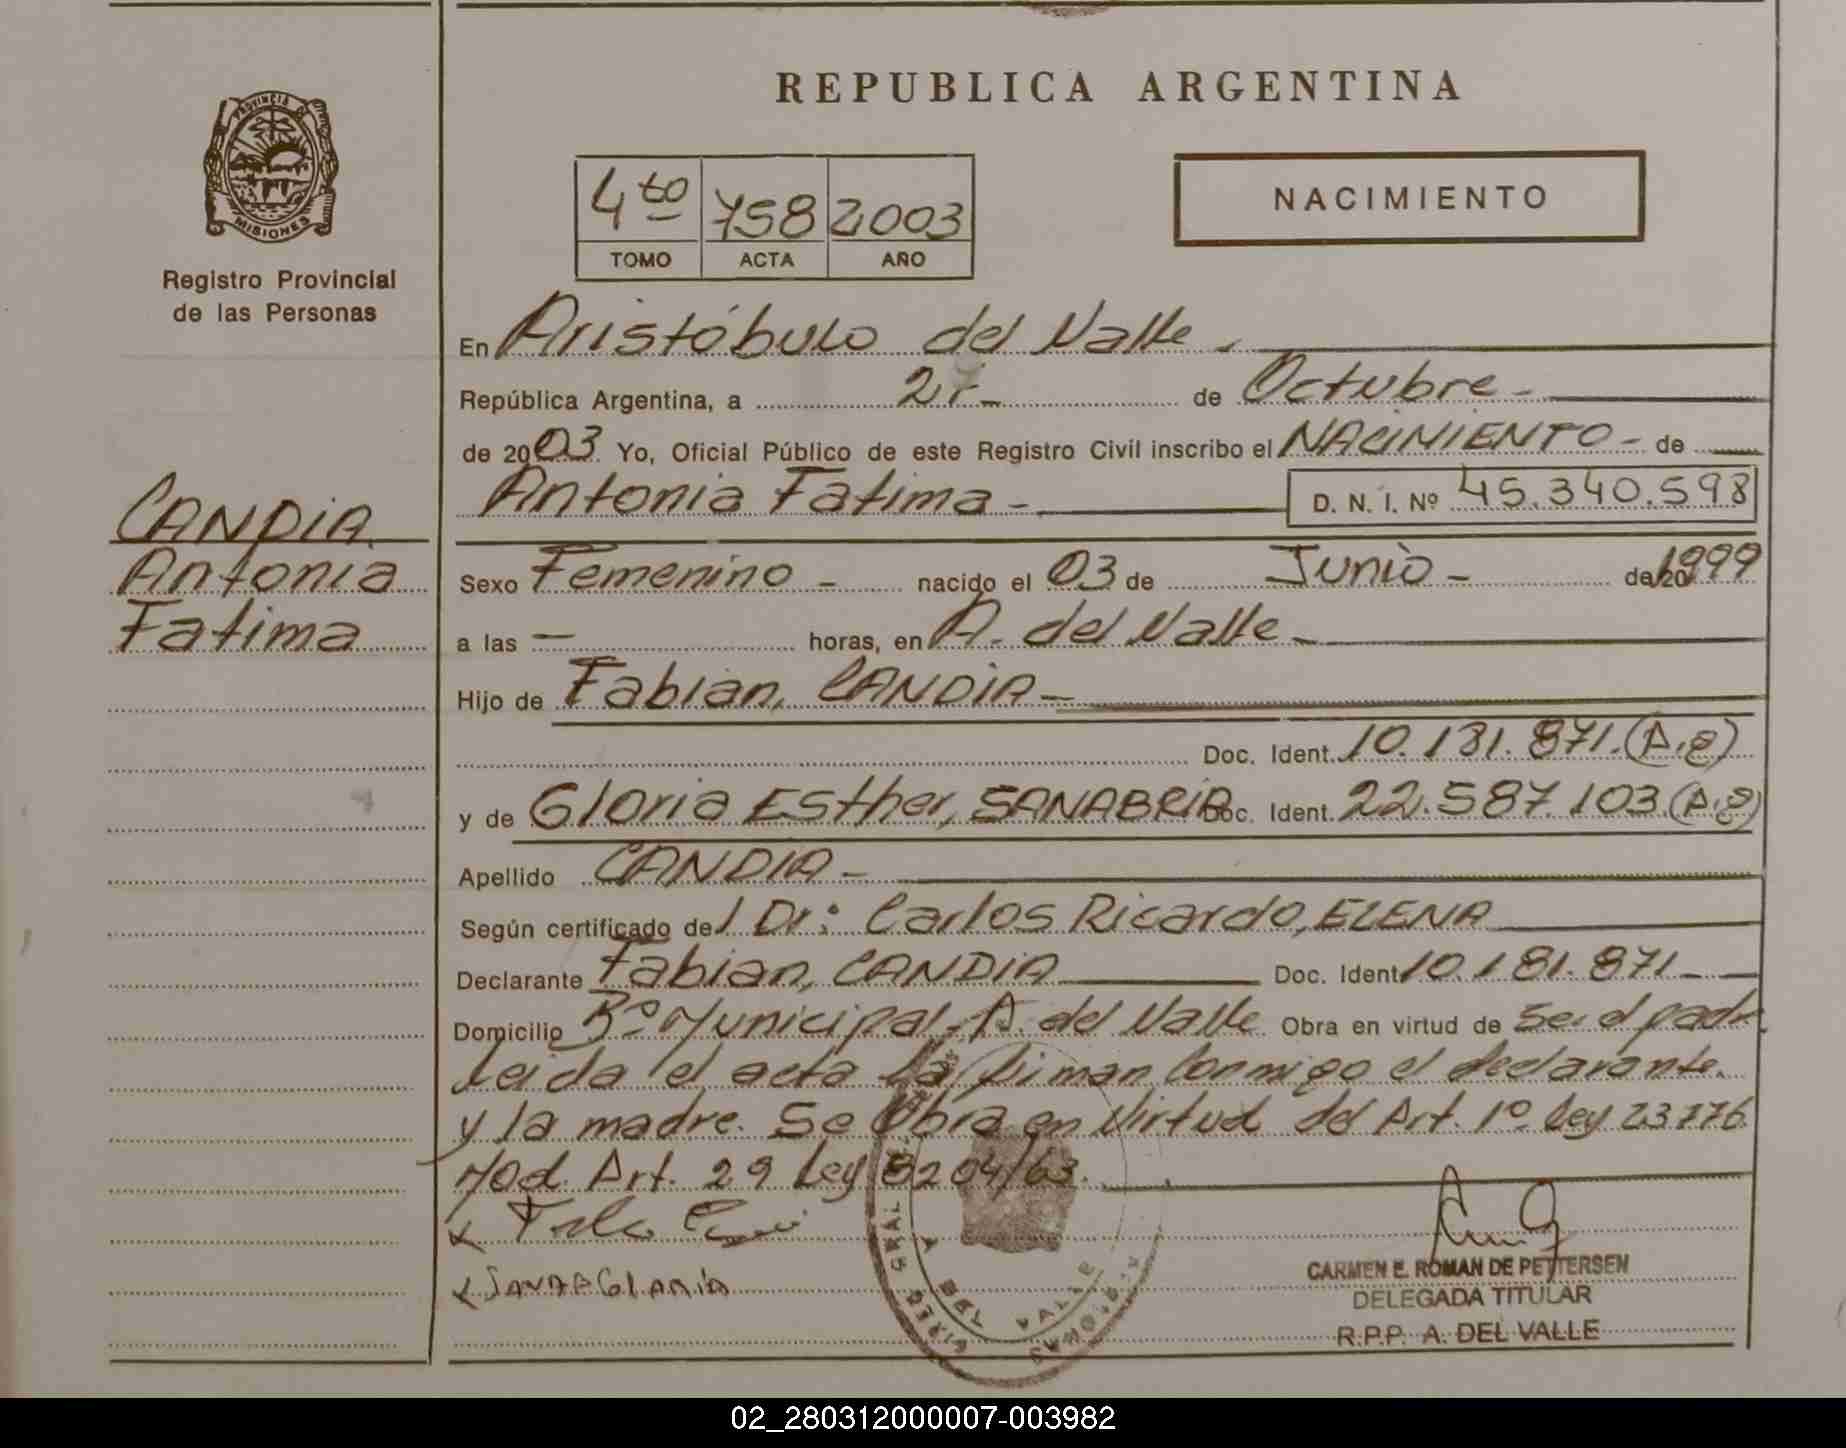 REPUBLICA ARGENTINA
PROVINCIA DE
MISIONES
Registro Provincial
de las Personas
4to 758 2003
TOMO ACTA AÑO
NACIMIENTO
En Aristóbulo del Valle.
República Argentina, a 27- de Octubre-
de 2003 Yo, Oficial Público de este Registro Civil inscribo el NACIMIENTO- de
Antonia Fatima- D. N. I. Nº 45.340.598
CANDIA
Antonia
Fatima
Sexo Femenino- nacido el 03 de Junio- de 1999
a las — horas, en A. del Valle-
Hijo de Fabian, CANDIA-
Doc. Ident. 10.181.871.
y de Gloria Esther, SANABRIA Doc. Ident. 22.587.103.
Apellido CANDIA-
Según certificado del Dr: Carlos Ricardo, ELENA
Declarante Fabian, CANDIA Doc. Ident. 10.181.871-
Domicilio Bº Municipal, A. del Valle Obra en virtud de ser el padre
Leida el acta la firman conmigo el declarante.
y la madre. Se Obra en virtud del Art. 1º Ley 23776
Mod. Art. 29 Ley 8204/63.
CARMEN E. ROMAN DE PETTERSEN
DELEGADA TITULAR
R.P.P. A. DEL VALLE
A DEL VALLE
02_280312000007-003982